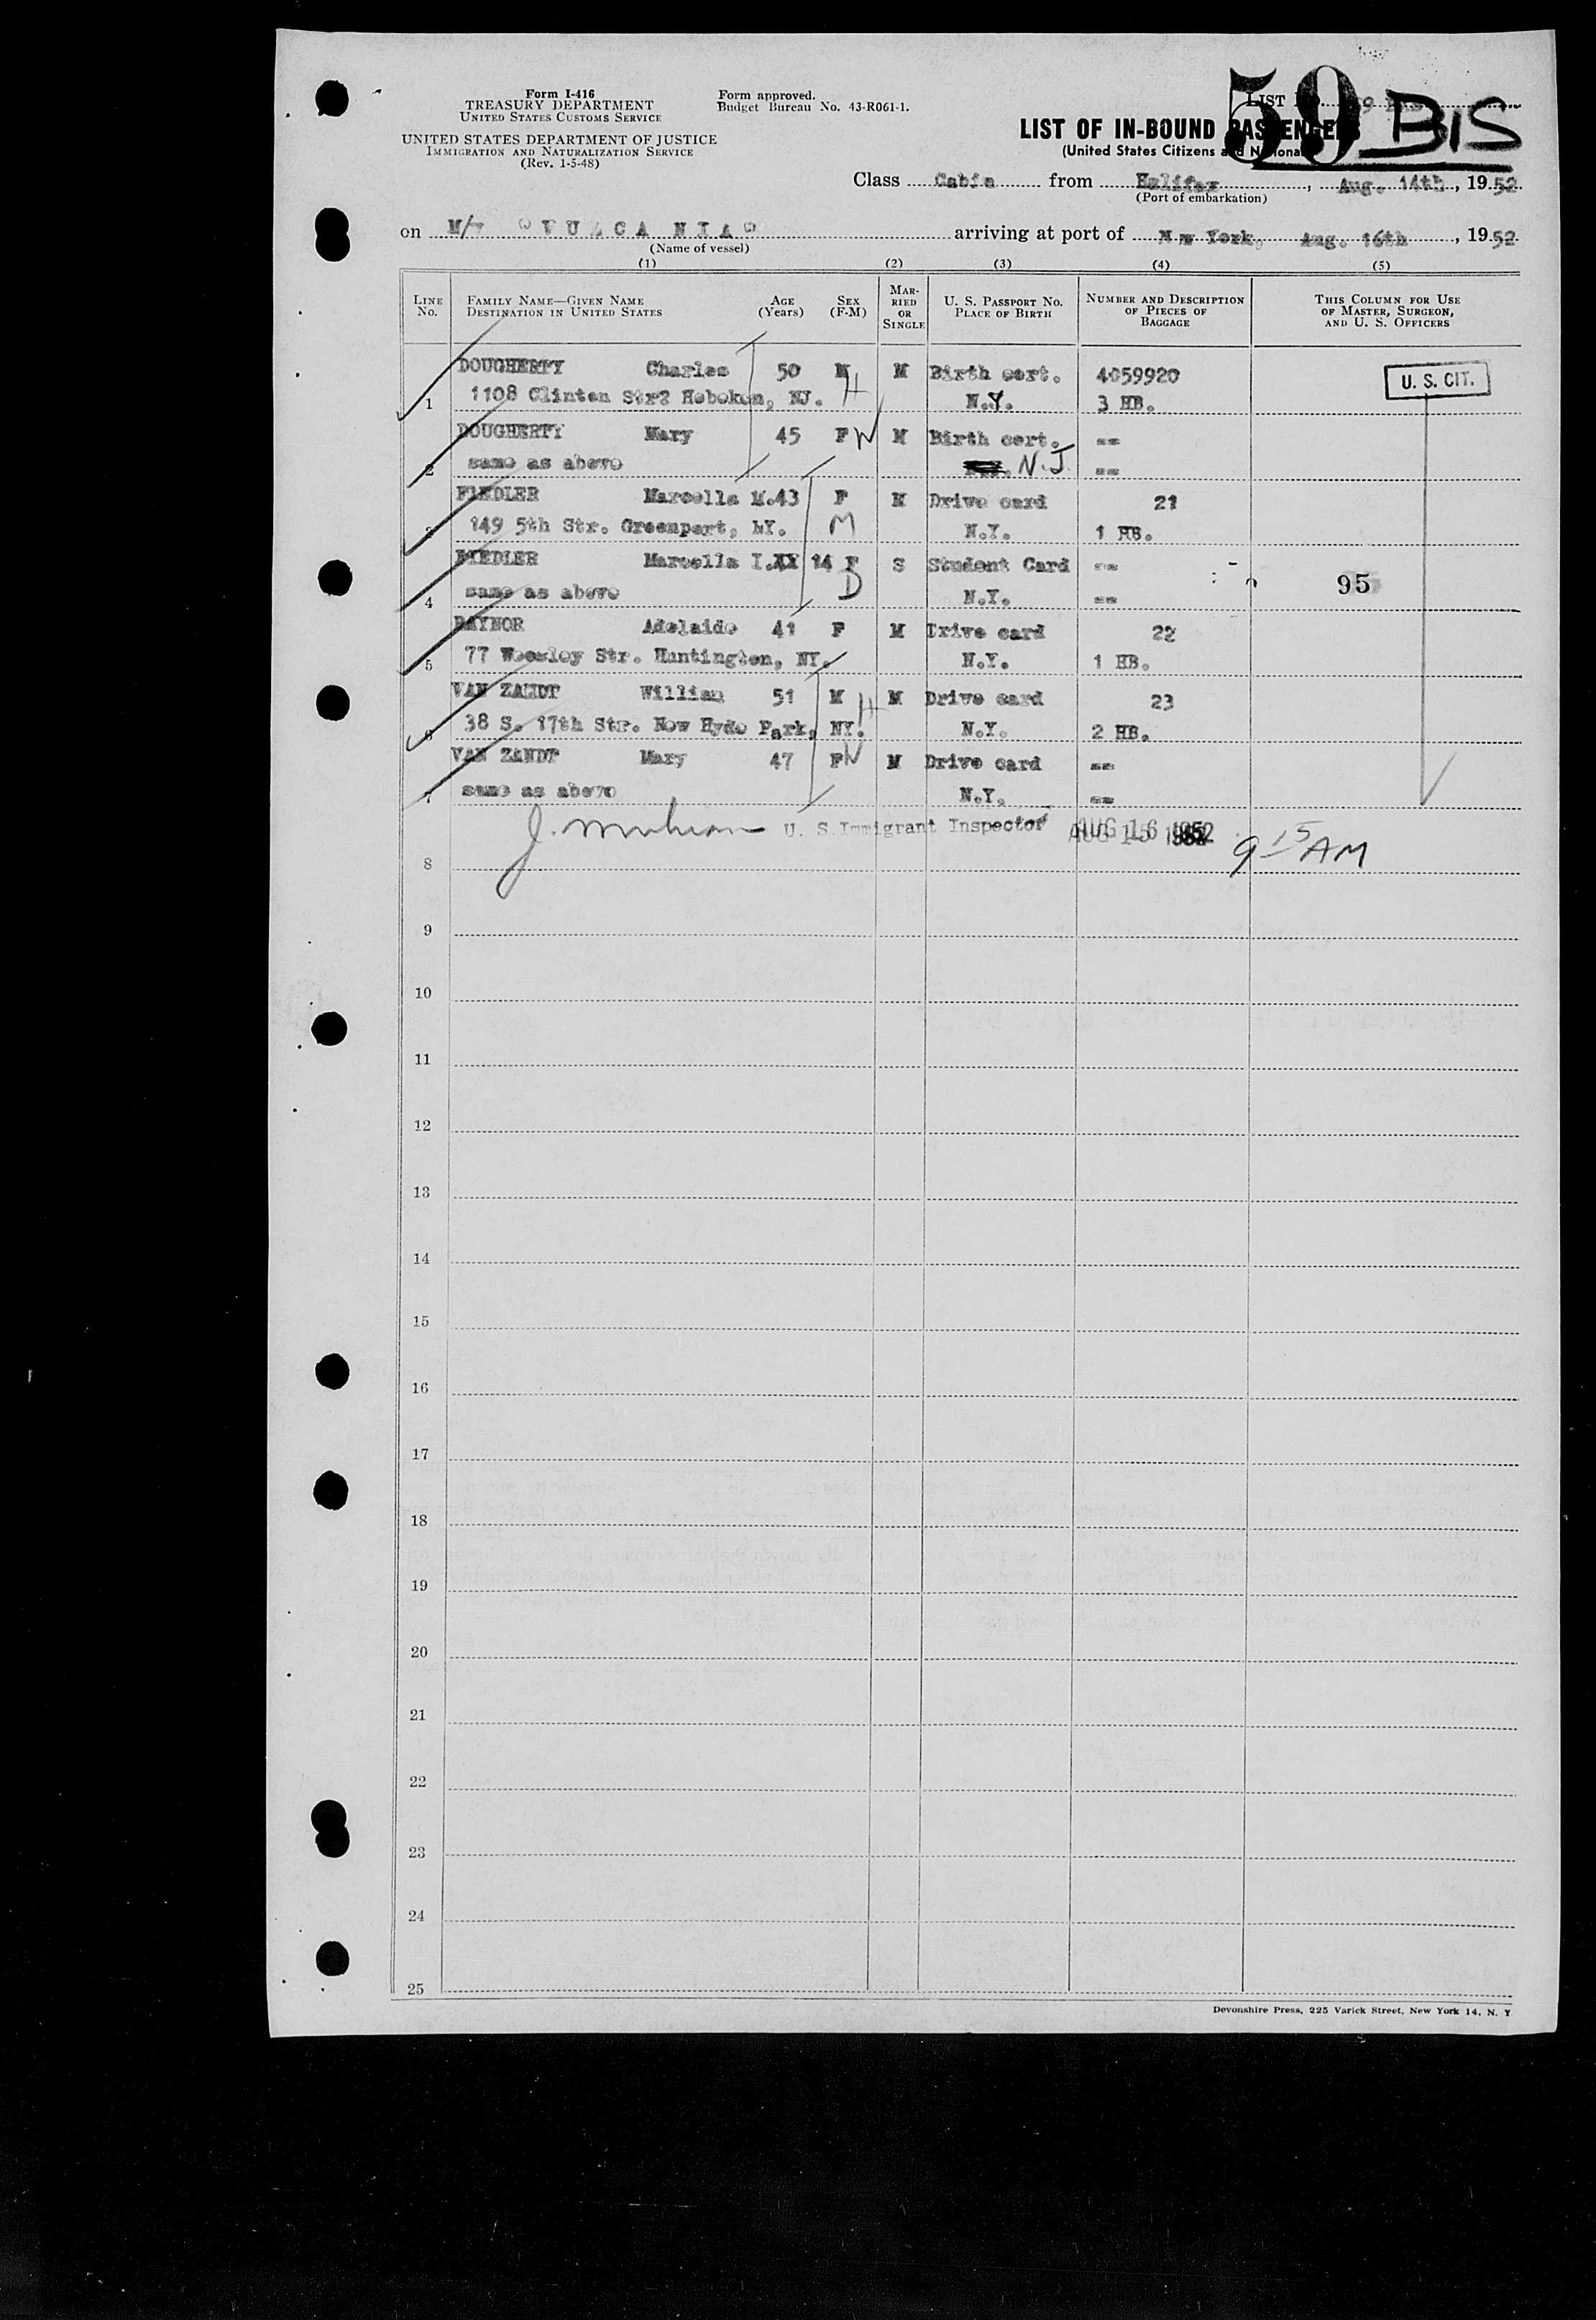 Form I-416
TREASURY DEPARTMENT
UNITED STATES CUSTOMS SERVICE
UNITED STATES DEPARTMENT OF JUSTICE
IMMIGRATION AND NATURALIZATION SERVICE
(Rev. 1-5-48)
Form approved.
Budget Bureau No. 43-R061-1.
LIST
59 BIS
LIST OF IN-BOUND PASSENGERS
(United States Citizens and Nationals)
Class Cabin from Halifax, Aug. 14th, 1952
(Port of embarkation)
on M/v "VULCANIA" arriving at port of New York, Aug. 16th, 1952
(Name of vessel)
(1) (2) (3) (4) (5)
LINE No.
FAMILY NAME—GIVEN NAME
DESTINATION IN UNITED STATES
AGE (Years)
SEX (F-M)
MARRIED OR SINGLE
U. S. PASSPORT NO.
PLACE OF BIRTH
NUMBER AND DESCRIPTION OF PIECES OF BAGGAGE
THIS COLUMN FOR USE OF MASTER, SURGEON, AND U. S. OFFICERS
DOUGHERTY Charles 50 M M Birth cert. 4059920 U. S. CIT.
1 1108 Clinton Str? Hoboken, NJ. H N.Y. 3 HB.
DOUGHERTY Mary 45 F W M Birth cert. --
2 same as above N.J. --
FIEDLER Marcella M. 43 F M Drive card 21
3 149 5th Str. Greenport, NY. M N.Y. 1 HB.
FIEDLER Marcella I. 14 F S Student Card --
4 same as above D N.Y. -- 95
RAYNOR Adelaide 41 F M Drive card 22
5 77 Str. Huntington, NY. N.Y. 1 HB.
VAN ZANDT William 51 M H M Drive card 23
6 38 S. 17th Str. New Hyde Park, NY. N.Y. 2 HB.
VAN ZANDT Mary 47 F W M Drive card --
7 same as above N.Y. --
J. U. S. Immigrant Inspector AUG 16 1952 9 15 AM
8
9
10
11
12
13
14
15
16
17
18
19
20
21
22
23
24
25
Devonshire Press, 225 Varick Street, New York 14, N. Y